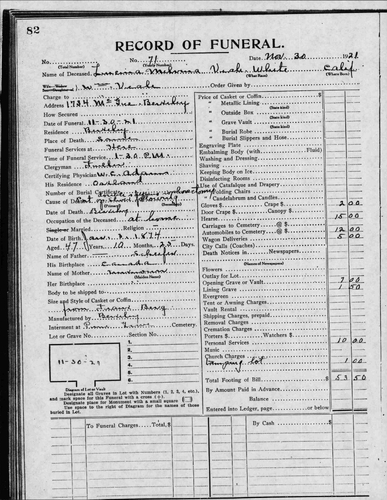 82
RECORD OF FUNERAL.
No. 71 Date Nov. 30 1921
(Total Number) (Yearly Number)
Name of Deceased, Veale White Calif
(What Race) (Where Born)
Veale Order Given by
Charge to
1734 Berkeley
How Secured
Date of Funeral 11-30-21
Residence Berkeley
Place of Death Same
Funeral Services at Here
Time of Funeral Service 1-30 P.M.
Clergyman
Certifying Physician W. C. Adams
His Residence Oakland
Number of Burial Certificate
Cause of Death following
Date of Death
Berkeley
Occupation of the Deceased at home
Single or Married Religion
Date of Birth Jan. 3. 1874
Aged 47 Years, 10 Months, 23 Days
Name of Father Schafer
His Birthplace Canada
Name of Mother unknown
(Maiden Name)
Her Birthplace
Body to be shipped to
Size and Style of Casket or Coffin
from
Manufactured by Berkeley
Interment at Cemetery
Lot or Grave No. Section No.
11-30-21
1.
2.
3.
4.
5.
6.
Diagram of Lot or Vault
Designate all Graves in Lot with Numbers (1, 2, 3, 4, etc.)
and mark space for this Funeral with a cross (+).
Designate place for Monument with a small square
Use space to right of Diagram for the names of those
buried in Lot.
Price of Casket or Coffin
" Metallic Lining
(State kind)
" Outside Box
(State kind)
" Grave Vault
(State kind)
" Burial Robe
" Burial Slippers and Hose
Engraving Plate
Embalming Body (with Fluid)
Washing and Dressing
Shaving
Keeping Body on Ice
Disinfecting Rooms
Use of Catafalque and Drapery
" Folding Chairs
" Candelabrum and Candles
Gloves $ Crape $ 2 00
Door Crape Gloves $
Hearse 15 00
Carriages to Cemetery @ $
Automobiles to Cemetery @ $ 12 00
Wagon Deliveries 5 00
City Calls (Coaches)
Death Notices in Newspapers
(Names of Newspapers)
Flowers
Outlay for Lot
Opening Grave or Vault 7 00
Lining Grave 1 50
Evergreen
Tent or Awning Charges
Vault Rental
Shipping Charges, prepaid
Removal Charges
Cremation Charges
Porters $ Watchers $
Personal Services 10 00
Music
Church Charges
1 00
Total Footing of Bill $ 53 50
By Amount Paid in Advance
Balance
Entered into Ledger, page or below
To Funeral Charges, Total $ By Cash $